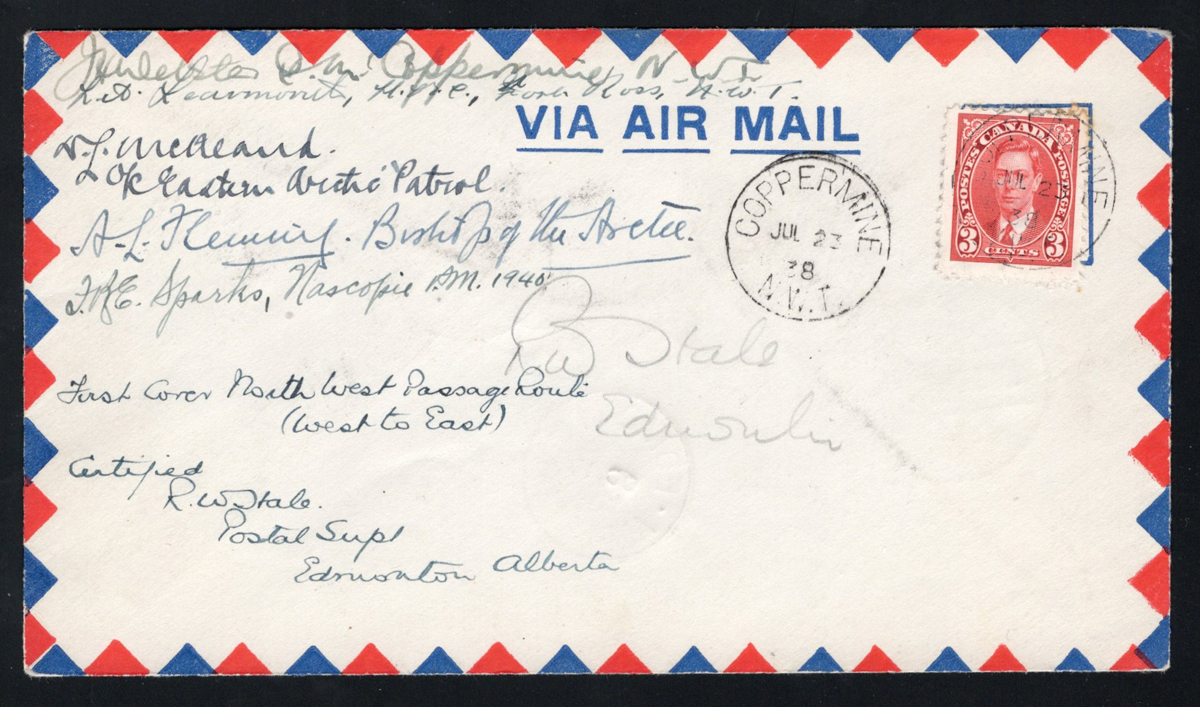 J Webster P.M. Coppermine, N.W.T.
L.A. Learmonth, H.B.C., Fort Ross, N.W.T.
VIA AIR MAIL
D.L. McKeand.
O/C Eastern Arctic Patrol.
A.L. Fleming. Bishop of the Arctic.
Sparks, Nascopie P.M. 1940
CANADA
POSTES POSTAGE
3 CENTS 3
COPPERMINE
JUL 23
38
N.W.T.
MINE
JUL 23
38
R W Hale
Edmonton
First Cover North West Passage Route
(West to East)
Certified
R. W Hale.
Postal Supt
Edmonton Alberta